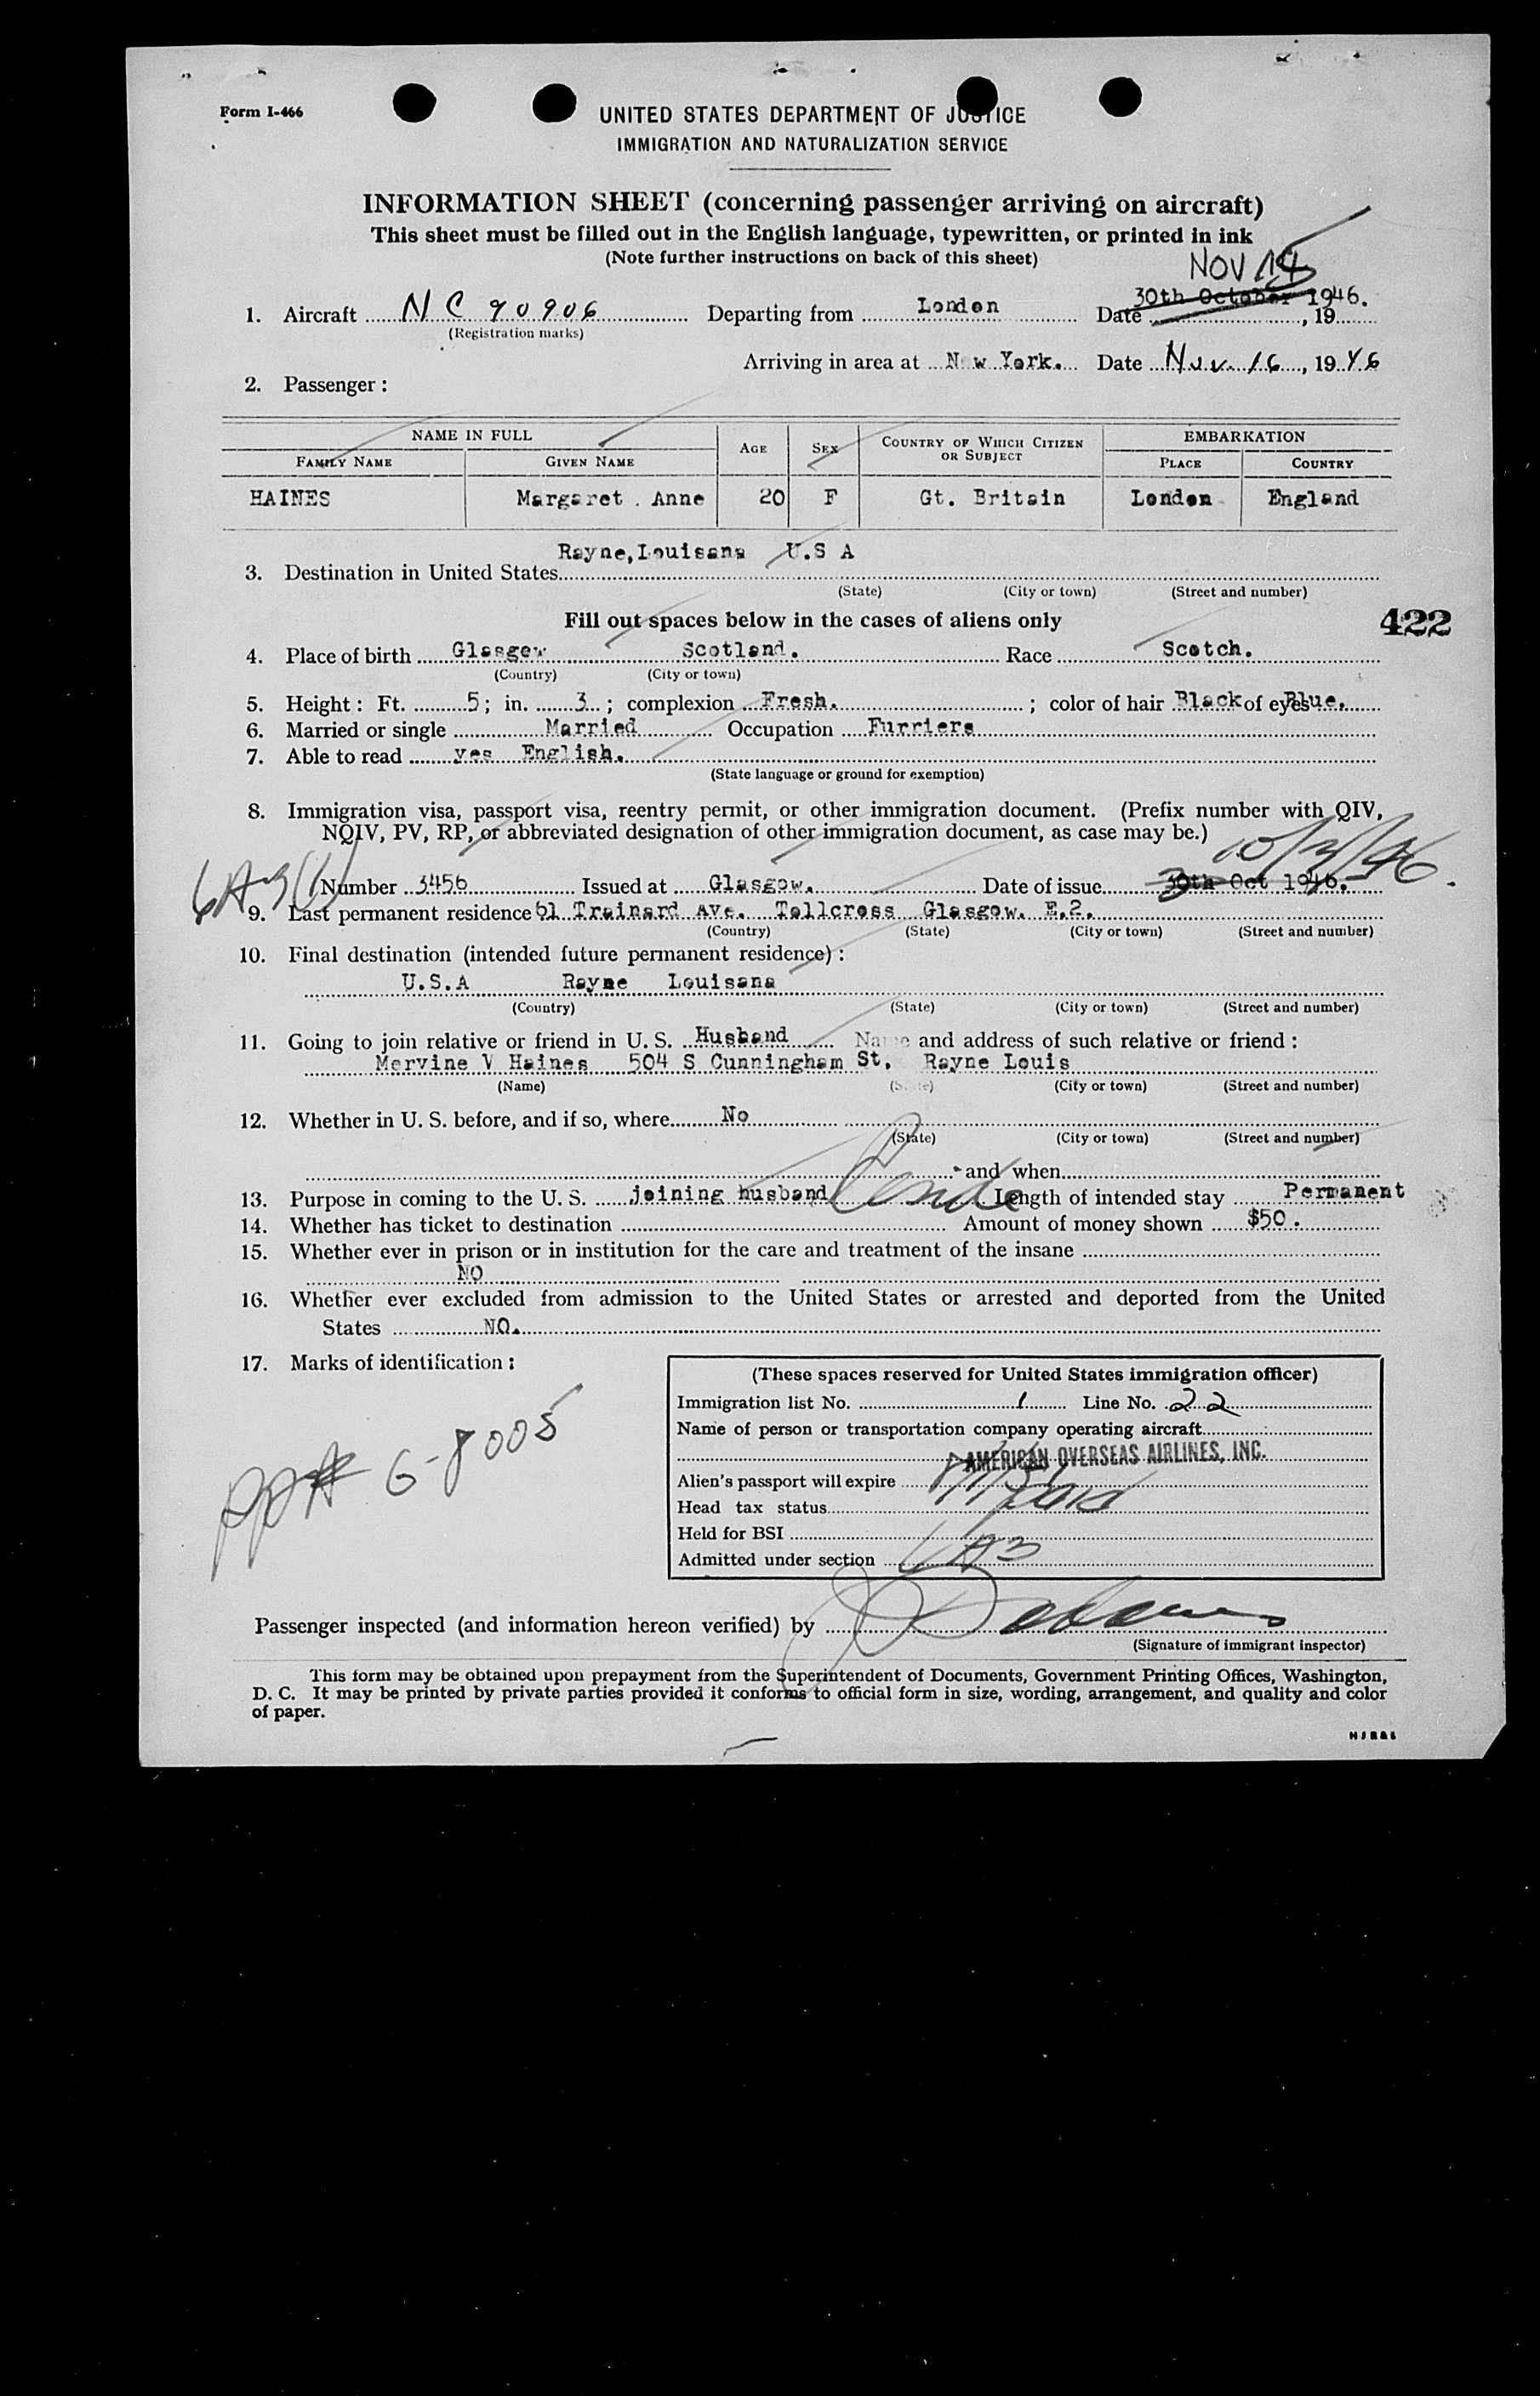 Form I-466
UNITED STATES DEPARTMENT OF JUSTICE
IMMIGRATION AND NATURALIZATION SERVICE
INFORMATION SHEET (concerning passenger arriving on aircraft)
This sheet must be filled out in the English language, typewritten, or printed in ink
(Note further instructions on back of this sheet)
NOV
30th October 1946.
1. Aircraft NC 90906 Departing from London Date , 19
(Registration marks)
Arriving in area at New York. Date Nov. 16, 1946
2. Passenger :
NAME IN FULL AGE SEX COUNTRY OF WHICH CITIZEN OR SUBJECT EMBARKATION
FAMILY NAME GIVEN NAME PLACE COUNTRY
HAINES Margaret . Anne 20 F Gt. Britain London England
Rayne, Louisana U.S A
3. Destination in United States
(State) (City or town) (Street and number)
Fill out spaces below in the cases of aliens only
422
4. Place of birth Glasgow Scotland. Race Scotch.
(Country) (City or town)
5. Height : Ft. 5 ; in. 3 ; complexion Fresh. ; color of hair Black of eyes Blue.
6. Married or single Married Occupation Furriers
7. Able to read yes English.
(State language or ground for exemption)
8. Immigration visa, passport visa, reentry permit, or other immigration document. (Prefix number with QIV,
NQIV, PV, RP, or abbreviated designation of other immigration document, as case may be.)
Number 3456 Issued at Glasgow. Date of issue 30th Oct 1946.
9. Last permanent residence 61 Trainard Ave. Tollcross Glasgow. E.2.
(Country) (State) (City or town) (Street and number)
10. Final destination (intended future permanent residence) :
U.S.A Rayne Louisana
(Country) (State) (City or town) (Street and number)
11. Going to join relative or friend in U. S. Husband Name and address of such relative or friend :
Mervine V Haines 504 S Cunningham St. Rayne Louis
(Name) (State) (City or town) (Street and number)
12. Whether in U. S. before, and if so, where No
(State) (City or town) (Street and number)
and when
13. Purpose in coming to the U. S. joining husband Length of intended stay Permanent
14. Whether has ticket to destination Amount of money shown $50.
15. Whether ever in prison or in institution for the care and treatment of the insane
NO
16. Whether ever excluded from admission to the United States or arrested and deported from the United
States NO.
17. Marks of identification :
PP# G-8005
(These spaces reserved for United States immigration officer)
Immigration list No. 1 Line No. 22
Name of person or transportation company operating aircraft
AMERICAN OVERSEAS AIRLINES, INC.
Alien's passport will expire
Head tax status Paid
Held for BSI
Admitted under section
Passenger inspected (and information hereon verified) by
(Signature of immigrant inspector)
This form may be obtained upon prepayment from the Superintendent of Documents, Government Printing Offices, Washington,
D. C. It may be printed by private parties provided it conforms to official form in size, wording, arrangement, and quality and color
of paper.